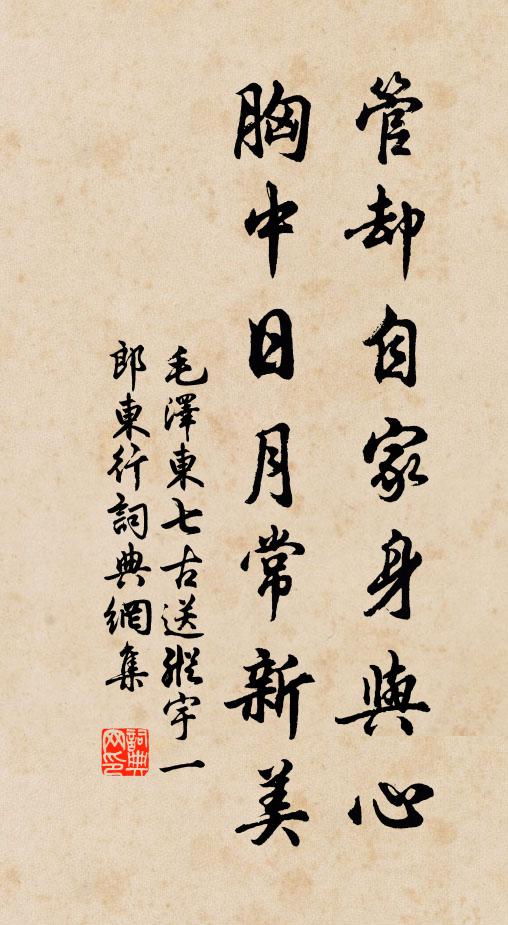 管却自家身與心
胸中日月常新美
毛澤東七古送縱宇一
郎東行詞典網集
詞典
网印